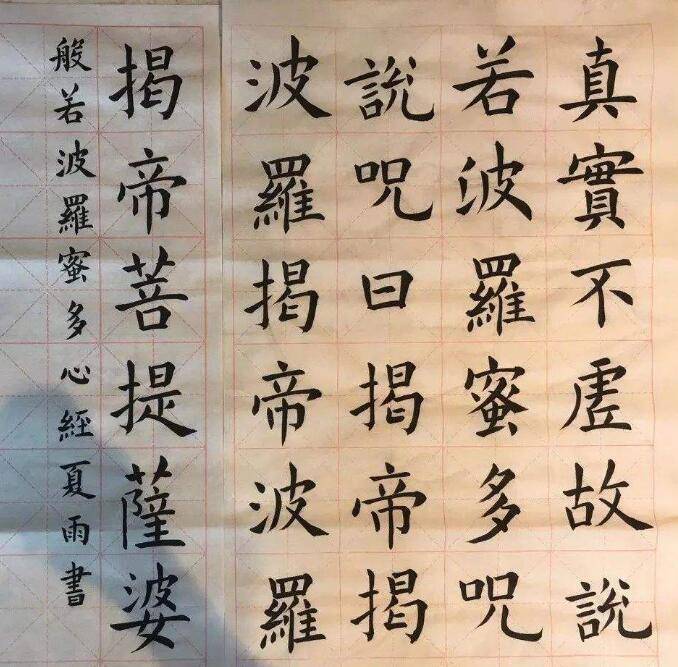 真實不虛故說
若波羅蜜多呪
說呪曰揭帝揭
波羅揭帝波羅
揭帝菩提薩婆
般若波羅蜜多心經夏雨書